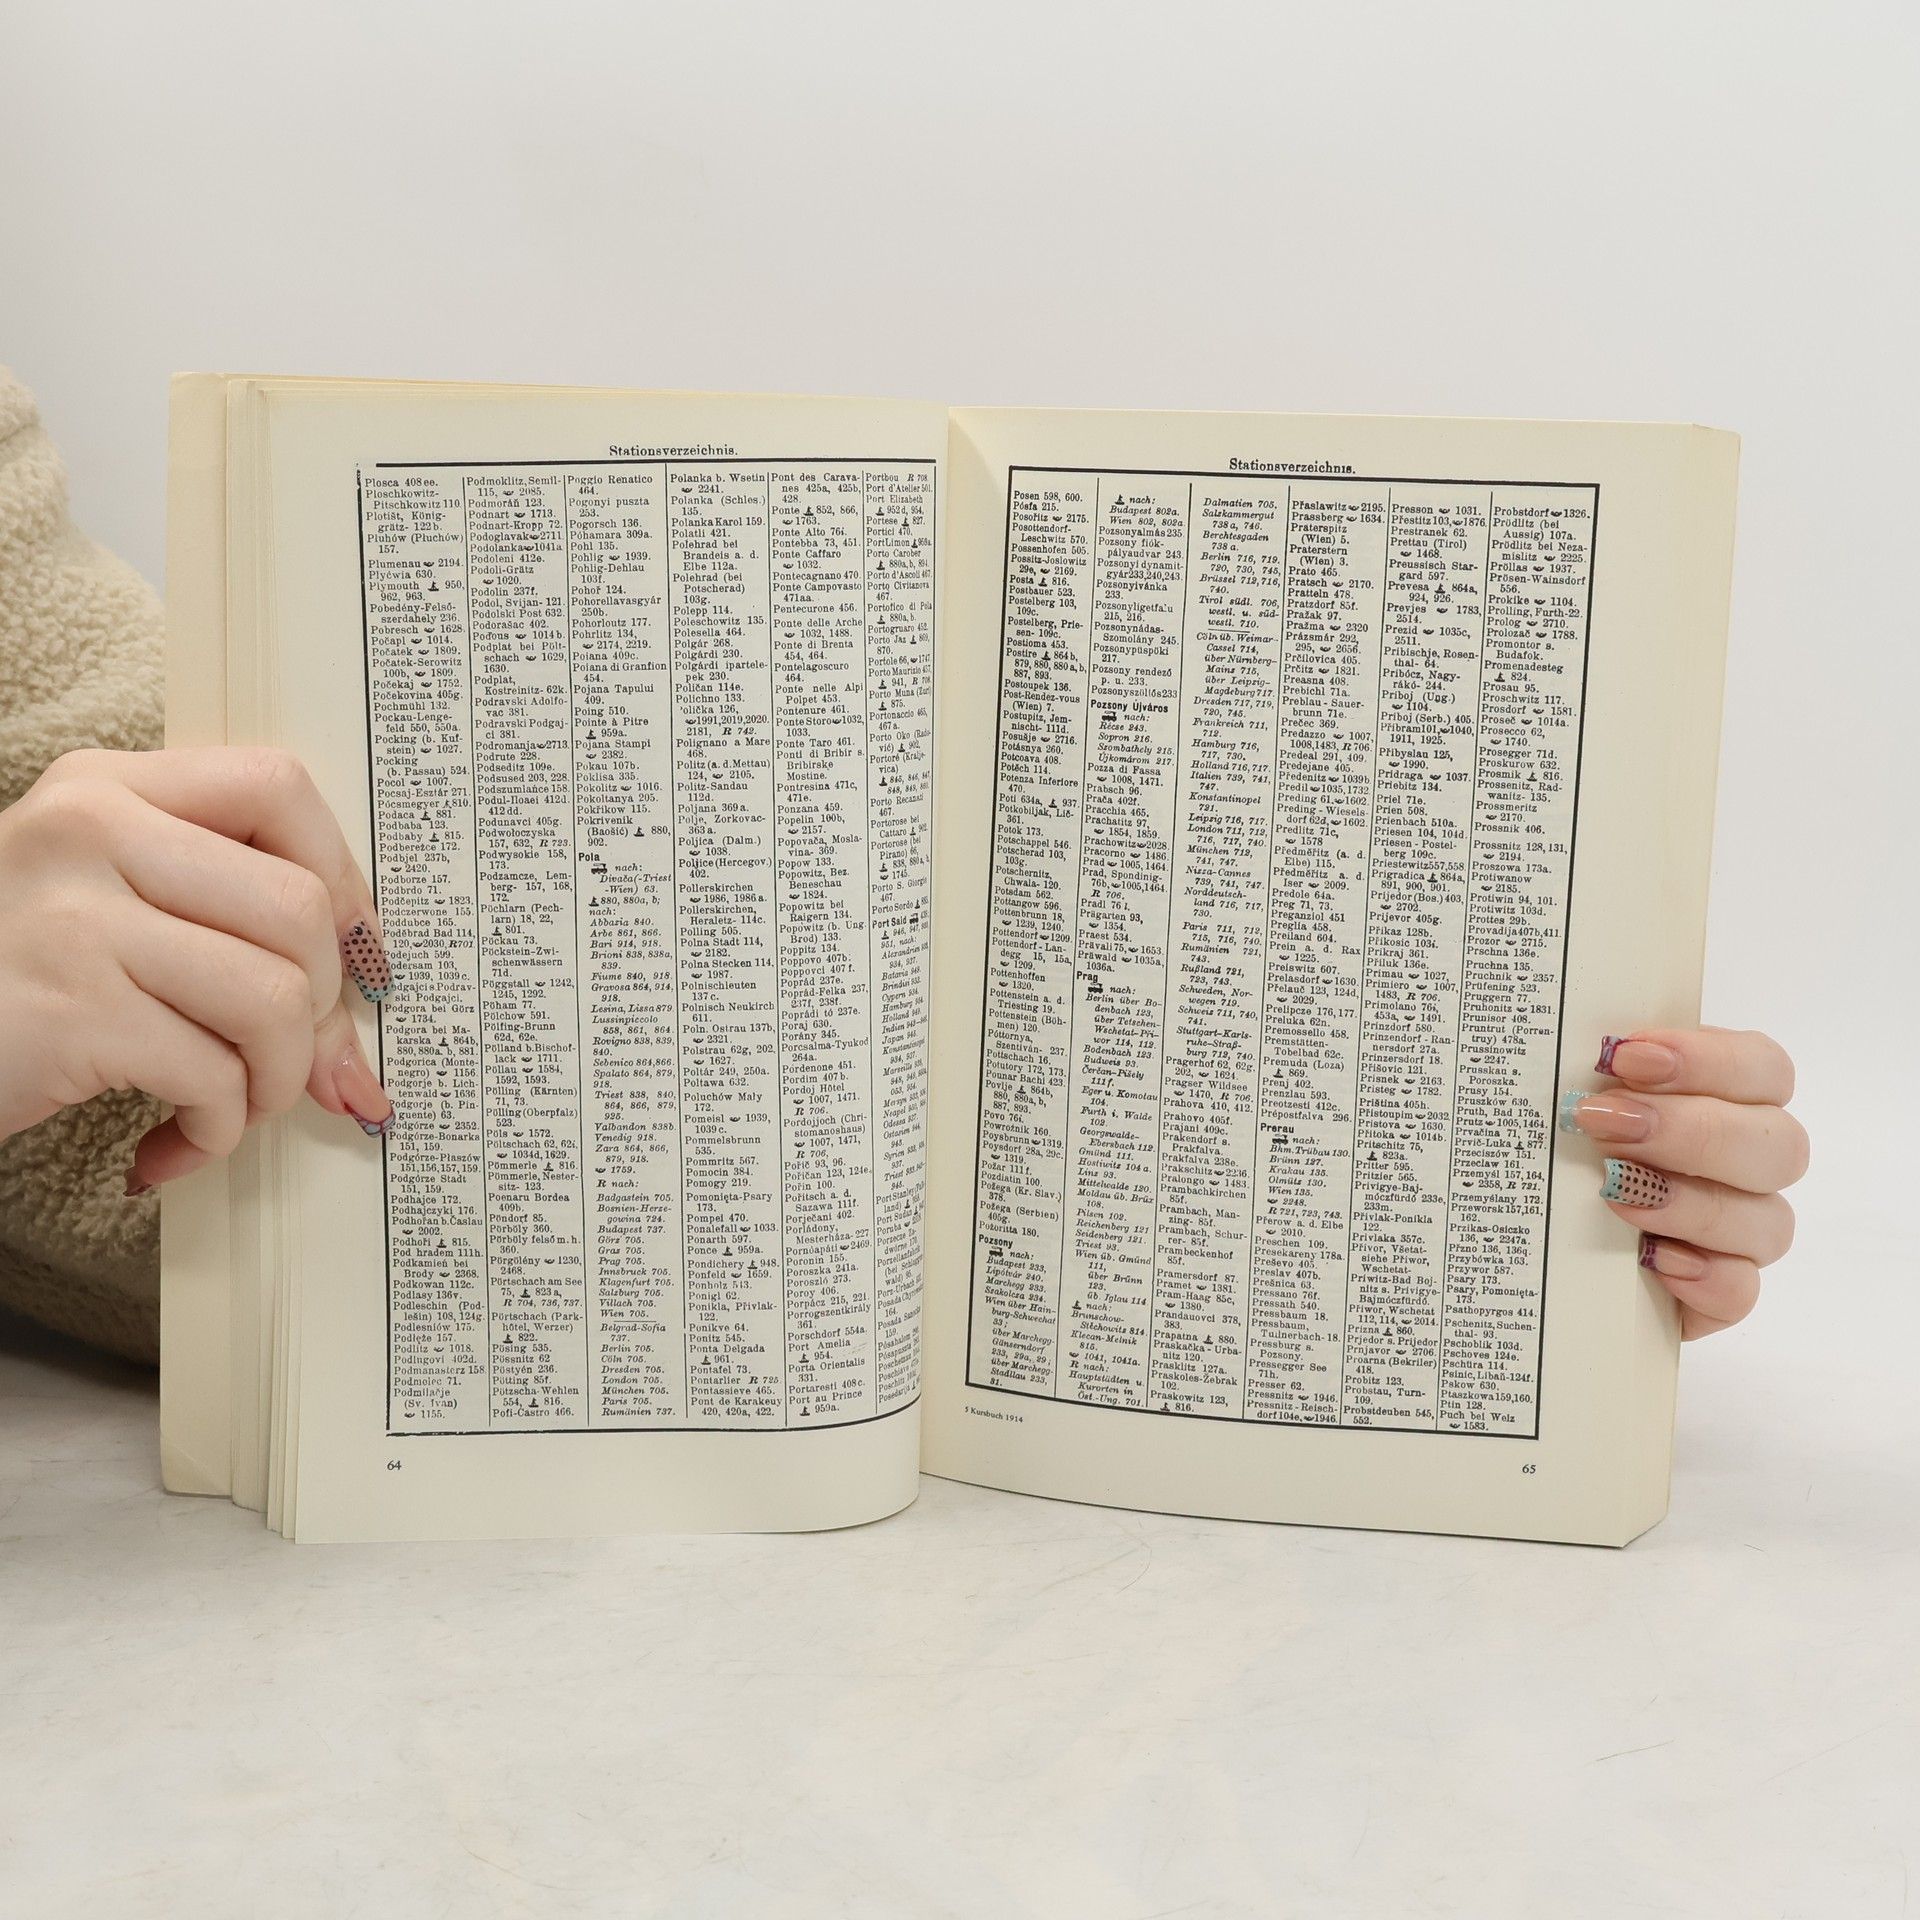 Stationsverzeichnis.
Plosca 408ee.
Ploschkowitz-
Pitschkowitz 110
Plotišt, König-
grätz- 122b.
Pluhów (Pluchów)
157.
Plumenau 2194.
Plyćwia 630.
Plymouth 950,
962, 963.
Pobedény-Felső-
szerdahely 236.
Pobresch 1628.
Počapl 1014.
Počatek 1809.
Počatek-Serowitz
100b, 1809.
Počekaj 1752.
Počekovina 405g.
Pochmühl 132.
Pockau-Lenge-
feld 550, 550a.
Pocking (b. Kuf-
stein) 1027.
Pocking
(b. Passau) 524.
Pocol 1007.
Pocsaj-Esztár 271.
Pócsmegyer 810.
Podaca 881.
Podbaba 123.
Podbaby 815.
Podbereźce 172.
Podbjel 237b,
2420.
Podborze 157.
Podbrdo 71.
Podčepitz 1823.
Podczerwone 155.
Poddubce 165.
Poděbrad Bad 114,
120, 2030, R 701.
Podejuch 599.
Podersam 103,
1939, 1039c.
ski Podgajci.
Podgora bei Görz
1734.
Podgora bei Ma-
karska 864b,
880, 880a. b, 881.
Podgorica (Monte-
negro) 1156
Podgorje b. Lich-
tenwald 1636
Podgorje (b. Pin-
guente) 63.
Podgórze 2352.
Podgórze-Bonarka
151, 159.
Podgórze-Płaszów
151, 156, 157, 159.
Podgórze Stadt
151, 159.
Podhajce 172.
Podhajczyki 176.
Podhořan b.Časlau
2002.
Podhoři 815.
Pod hradem 111h.
Podkamień bei
Brody 2368.
Podkowan 112c.
Podlasy 136v.
Podleschin (Pod-
lešin) 108, 124g.
Podlesniów 175.
Podlęże 157.
Podlitz 1018.
Podlugovi 402d.
Podmelec 71.
Podmilačje
(Sv. Ivan)
1155.
Podmoklitz, Semil-
115, 2085.
Podmoráń 123.
Podnart 1713.
Podnart-Kropp 72.
Podoglavak 2711.
Podolanka 1041a
Podoleni 412e.
Podoli-Grätz
1020.
Podolin 237f.
Podol, Svijan- 121.
Podolski Post 632.
Podorašac 402.
Poďous 1014b.
Podplat bei Pölt-
schach 1629,
1630.
Podplat,
Kostreinitz- 62k.
Podravski Adolfo-
vac 381.
Podravski Podgaj-
ci 381.
Podromanja 2713.
Podrute 228.
Podseditz 109e.
Podsused 203, 228.
Podszumlańce 158.
Podul-Iloaei 412d.
412dd.
Podunavci 405g.
Podwołoczyska
157, 632, R 723.
Podwysokie 158,
173.
Podzamcze, Lem-
berg- 157, 168,
172.
Pöchlarn (Pech-
larn) 18, 22,
801.
Pöckau 73.
Pöckstein-Zwi-
schenwässern
71d.
Pöggstall 1242,
1245, 1292.
Pöham 77.
Pölchow 591.
Pölfing-Brunn
62d, 62e.
Pölland b.Bischof-
lack 1711.
Pöllau 1584,
1592, 1593.
Pölling (Kärnten)
71, 73.
Pölling (Oberpfalz)
523.
Pöls 1572.
Pöltschach 62, 62i,
1034d, 1629.
Pömmerle 816.
Pömmerle, Nester-
sitz- 123.
Poenaru Bordea
409b.
Pöndorf 85.
Pörböly 360.
Pörböly felső m. h.
360.
Pörgölény 1230,
2468.
Pörtschach am See
75, 823a,
R 704, 736, 737.
Pörtschach (Park-
hôtel, Werzer)
822.
Pösing 535.
Pössnitz 62
Pöstyén 236.
Pötting 85f.
Pötzscha-Wehlen
554, 816.
Pofi-Castro 466.
Poggio Renatico
464.
Pogonyi puszta
253.
Pogorsch 136.
Póhamara 309a.
Pohl 135.
Pohlig 1939.
Pohlig-Dehlau
103f.
Pohoř 124.
Pohorellavasgyár
250b.
Pohorloutz 177.
Pohrlitz 134,
2174, 2219.
Poiana 409c.
Poiana di Granfion
454.
Pojana Tapului
409.
Poing 510.
Pointe à Pitre
959a.
Pojana Stampi
2382.
Pokau 107b.
Poklisa 335.
Pokolitz 1016.
Pokoltanya 205.
Pokřikow 115.
Pokrivenik
(Baošić) 880,
902.
Pola
nach:
Divača(-Triest
-Wien) 63.
880, 880a, b;
nach:
Abbazia 840.
Arbe 861, 866.
Bari 914, 918.
Brioni 838, 838a,
839.
Fiume 840, 918.
Gravosa 864, 914,
918.
Lesina, Lissa 879.
Lussinpiccolo
858, 861, 864.
Rovigno 838, 839,
840.
Sebenico 864, 866.
Spalato 864, 879,
918.
Triest 838, 840,
864, 866, 879,
925.
Valbandon 838b.
Venedig 918.
Zara 864, 866,
879, 918.
1759.
R nach:
Badgastein 705.
Bosnien-Herze-
gowina 724.
Budapest 737.
Görz 705.
Graz 705.
Prag 705.
Innsbruck 705.
Klagenfurt 705.
Salzburg 705.
Villach 705.
Wien 705.
Belgrad-Sofia
737.
Berlin 705.
Cöln 705.
Dresden 705.
London 705.
München 705.
Paris 705.
Rumänien 737.
Polanka b. Wsetin
2241.
Polanka (Schles.)
135.
Polanka Karol 159.
Polatli 421.
Polehrad bei
Brandeis a. d.
Elbe 112a.
Polehrad (bei
Potscherad)
103g.
Polepp 114.
Poleschowitz 135.
Polesella 464.
Polgár 268.
Polgárdi 230.
Polgárdi ipartele-
pek 230.
Poličan 114e.
Polichno 133.
Polička 126,
1991, 2019, 2020.
2181, R 742.
Polignano a Mare
468.
Politz (a. d.Mettau)
124, 2105.
Politz-Sandau
112d.
Poljana 369a.
Polje, Zorkovac-
363a.
Poljica (Dalm.)
1038.
Poljice (Hercegov.)
402.
Pollerskirchen
1986, 1986a.
Pollerskirchen,
Heraletz- 114c.
Polling 505.
Polna Stadt 114,
2182.
Polna Stecken 114.
1987.
Polnischleuten
137c.
Polnisch Neukirch
611.
Poln. Ostrau 137b,
2321.
Polstrau 62g, 202,
1627.
Poltár 249, 250a.
Poltawa 632.
Poluchów Mały
172.
Pomeisl 1939,
1039c.
Pommelsbrunn
535.
Pommritz 567.
Pomocin 384.
Pomogy 219.
Pomonięta-Psary
173.
Pompei 470.
Ponalefall 1033.
Ponarth 597.
Ponce 959a.
Pondichery 948.
Ponfeld 1659.
Ponigl 62.
Ponikla, Přivlak-
122.
Ponikve 64.
Ponitz 545.
Ponta Delgada
961.
Pontafel 73.
Pontarlier R 725.
Pontassieve 465.
Pont de Karakeuy
420, 420a, 422.
Pont des Carava-
nes 425a, 425b,
428.
Ponte 852, 866,
1763.
Ponte Alto 76i.
Pontebba 73, 451.
Ponte Caffaro
1032.
Pontecagnano 470.
Ponte Campovasto
471aa.
Pentecurone 456.
Ponte delle Arche
1032, 1488.
Ponte di Brenta
454, 464.
Pontelagoscuro
464.
Ponte nelle Alpi
Polpet 453.
Pontenure 461.
Ponte Storo 1032,
1033.
Ponte Taro 461.
Ponti di Bribir s.
Bribirske
Mostine.
Pontresina 471c,
471e.
Ponzana 459.
Popelin 100b,
2157.
Popovača, Mosla-
vina- 369.
Popow 133.
Popowitz, Bez.
Beneschau
1824.
Popowitz bei
Raigern 134.
Popowitz (b. Ung.
Brod) 133.
Poppitz 134.
Poppovo 407b.
Poppovci 407f.
Poprád 237e.
Poprád-Felka 237,
237f, 238f.
Poprádi tó 237e.
Poraj 630.
Porány 345.
Porcsalma-Tyukod
264a.
Pordenone 451.
Pordim 407b.
Pordoj Hôtel
1007, 1471.
R 706.
Pordojjoch (Chri-
stomanoshaus)
1007, 1471,
R 706.
Pořič 93, 96.
Pořičan 123, 124e.
Pořin 100.
Pořitsch a. d.
Sazawa 111f.
Porječani 402.
Porládony,
Mesterháza- 227
Pornóapáti 2469.
Poronin 155.
Poroszka 241a.
Poroszló 273.
Poroy 406.
Porpácz 215, 221.
Porrogszentkirály
361.
Porschdorf 554a.
Port Amelia
954.
Porta Orientalis
331.
Portaresti 408c.
Port au Prince
959a.
Portbou R 708.
Port d'Atelier 501.
Port Elizabeth
952d, 954.
Portese 827.
Portici 470.
Port Limon 959a
Porto Carober
880a, b, 891.
Porto d'Ascoli 467.
Porto Civitanova
467.
Portofico di Pola
880a, b.
Portogruaro 452.
Porto Jaz 869,
870.
Portole 66, 1747
Porto Maurizio 457,
941, R 708
Porto Muna (Zuri)
875.
Portonaccio 465,
467a.
Port Said
64
Stationsverzeichnis.
Posen 598, 600.
Pósfa 215.
Posořitz 2175.
Posottendorf-
Leschwitz 570.
Possenhofen 505.
Possitz-Joslowitz
29e, 2169.
Posta 816.
Postbauer 523.
Postelberg 103,
109c.
Postelberg, Prie-
sen- 109c.
Postioma 453.
Postire 864b,
879, 880, 880a, b,
887, 893.
Postoupek 136.
Post-Rendez-vous
(Wien) 7.
Postupitz, Jem-
nischt- 111d.
Posušje 2716.
Potásnya 260.
Potcoava 408.
Potěch 114.
Potenza Inferiore
470.
Poti 634a, 937.
Potkobiljak, Lič-
361.
Potok 173.
Potschappel 546.
Potscherad 103,
103g.
Potschernitz,
Chwala- 120.
Potsdam 562.
Pottangow 596.
Pottenbrunn 18,
1239, 1240.
Pottendorf 1209.
Pottendorf-Lan-
degg 15, 15a,
1209.
Pottenhoffen
1320.
Pottenstein a. d.
Triesting 19.
Pottenstein (Böh-
men) 120.
Póttornya,
Szentiván- 237.
Pottschach 16.
Potutory 172, 173.
Pounar Bachi 423.
Povlje 864b,
880, 880a, b,
887, 893.
Povo 76i.
Powroźnik 160.
Poysbrunn 1319.
Poysdorf 28a, 29c.
1319.
Požar 111f.
Pozdiatin 100.
Požega (Kr. Slav.)
378.
Požega (Serbien)
405g.
Požoritta 180.
Pozsony
nach:
Budapest 233,
Lipótvár 240.
Marchegg 233.
Szakolcza 234.
Wien über Hain-
burg-Schwechat
33;
über Marchegg-
Gänserndorf
233, 29a, 29;
über Marchegg-
Stadlau 233,
31.
nach:
Budapest 802a.
Wien 802, 802a.
Pozsonyalmás 235.
Pozsony fiók-
pályaudvar 243.
Pozsonyi dynamit-
gyár 233, 240, 243.
Pozsonyivánka
233.
Pozsonyligetfalu
215, 216.
Pozsonynádas-
Szomolány 245.
Pozsonypüspöki
217.
Pozsony rendező
p. u. 233.
Pozsonyszöllős 233
Pozsony Újváros
nach:
Récse 243.
Sopron 216.
Szombathely 215.
Ujkomárom 217.
Pozza di Fassa
1008, 1471.
Prabsch 96.
Prača 402f.
Pracchia 465.
Prachatitz 97,
1854, 1859.
Prachowitz 2028.
Pracorno 1486.
Prad 1005, 1464.
Prad, Spondinig-
76b, 1005, 1464.
R 706.
Pradl 76i,
Prägarten 93,
1354.
Praest 534.
Prävali 75, 1653.
Präwald 1035a,
1036a.
Prag
nach:
Berlin über Bo-
denbach 123,
über Tetschen-
Wschetat-Při-
wor 114, 112.
Bodenbach 123.
Budweis 93.
Čerčan-Pišely
111f.
Eger u. Komotau
104.
Furth i. Walde
102.
Georgswalde-
Ebersbach 112
Gmünd 111.
Hostiwitz 104a.
Linz 93.
Mittelwalde 120.
Moldau üb. Brüx
108.
Pilsen 102.
Reichenberg 121
Seidenberg 121.
Triest 93.
Wien üb. Gmünd
111,
über Brünn
123.
üb. Iglau 114
nach:
Brunschow-
Stěchowitz 814.
Klecan-Melnik
815.
1041, 1041a.
R nach:
Hauptstädten u.
Kurorten in
Öst.-Ung. 701.
Dalmatien 705.
Salzkammergut
738a, 746.
Berchtesgaden
738a.
Berlin 716, 719.
720, 730, 745,
Brüssel 712, 716,
740.
Tirol südl. 706,
westl. u. süd-
westl. 710.
Cöln üb. Weimar-
Cassel 714,
über Nürnberg-
Mainz 715,
über Leipzig-
Magdeburg 717.
Dresden 717, 719,
720, 745.
Frankreich 711,
712.
Hamburg 716,
717, 730.
Holland 716, 717.
Italien 739, 741,
747.
Konstantinopel
721.
Leipzig 716, 717.
London 711, 712,
716, 717, 740.
München 712,
741, 747.
Nizza-Cannes
739, 741, 747.
Norddeutsch-
land 716, 717,
730.
Paris 711, 712,
715, 716, 740.
Rumänien 721,
743.
Rußland 721,
723, 743.
Schweden, Nor-
wegen 719.
Schweiz 711, 740,
741.
Stuttgart-Karls-
ruhe-Straß-
burg 712, 740.
Pragerhof 62, 62g.
202, 1624.
Pragser Wildsee
1470, R 706.
Prahova 410, 412.
Prahovo 405f.
Prajani 409c.
Prakendorf s.
Prakfalva.
Prakfalva 238e.
Prakschitz 2236.
Pralongo 1483.
Prambachkirchen
85f.
Prambach, Man-
zing- 85f.
Prambach, Schur-
rer- 85f.
Prambeckenhof
85f.
Pramersdorf 87.
Pramet 1381,
Pram-Haag 85c,
1380.
Prandauovci 378,
383.
Prapatna 880.
Praskačka - Urba-
nitz 120.
Prasklitz 127a.
Praskoles-Žebrak
102.
Praskowitz 123,
816.
Přaslawitz 2195.
Prassberg 1634.
Praterspitz
(Wien) 5.
Praterstern
(Wien) 3.
Prato 465.
Pratsch 2170.
Pratteln 478.
Pratzdorf 85f.
Pražak 97.
Pražma 2320
Prázsmár 292,
295, 2656.
Prčilovica 405.
Prčitz 1821.
Preasna 408.
Prebichl 71a.
Preblau - Sauer-
brunn 71e.
Prečec 369.
Predazzo 1007,
1008, 1483, R 706.
Predeal 291, 409.
Predejane 405.
Předenitz 1039b
Predil 1035, 1732.
Preding 61, 1602.
Preding - Wiesels-
dorf 62d, 1602.
Predlitz 71c,
1578
Předměřitz (a. d.
Elbe) 115.
Předměřitz a. d.
Iser 2009.
Predole 64a.
Preg 71, 73.
Preganziol 451
Preglia 458.
Preiland 604.
Prein a. d. Rax
1225.
Preiswitz 607.
Prelasdorf 1630.
Přelauč 123, 124d,
2029.
Prelipcze 176, 177.
Preluka 62n.
Premossello 458.
Premstätten-
Tobelbad 62c.
Premuda (Loza)
869.
Prenj 402.
Prenzlau 593.
Preotzesti 412c.
Prépostfalva 296.
Prerau
nach:
Bhm.Trübau 130.
Brünn 127.
Krakau 135.
Olmütz 130.
Wien 135.
2248.
R 721, 723, 743.
Přerow a. d. Elbe
2010.
Preschen 109.
Presekareny 178a.
Preševo 405.
Preslav 407b.
Prešnica 63.
Pressano 76f.
Pressath 540.
Pressbaum 18.
Pressbaum,
Tulnerbach- 18.
Pressburg s.
Pozsony.
Pressegger See
71h.
Presser 62.
Pressnitz 1946.
Pressnitz - Reisch-
dorf 104e, 1946.
Presson 1031.
Přestitz 103, 1876.
Prestranek 62.
Prettau (Tirol)
1468.
Preussisch Star-
gard 597.
Prevesa 864a,
924, 926.
Prevjes 1783,
2514.
Prezid 1035c,
2511.
Pribischje, Rosen-
thal- 64.
Pribócz, Nagy-
rákó- 244.
Priboj (Ung.)
1104.
Priboj (Serb.) 405.
Přibram 101, 1040,
1911, 1925.
Přibyslau 125,
1990.
Pridraga 1037.
Priebitz 134.
Priel 71e.
Prien 508.
Prienbach 510a.
Priesen 104, 104d.
Priesen - Postel-
berg 109c.
Priestewitz 557, 558
Prigradica 864a,
891, 900, 901.
Prijedor (Bos.) 403,
2702.
Prijevor 405g.
Příkaz 128b.
Příkosic 103i.
Prikraj 361.
Příluk 136e.
Primau 1027,
Primiero 1007,
1483, R 706.
Primolano 76i,
453a, 1491.
Prinzdorf 580.
Prinzendorf - Ran-
nersdorf 27a.
Prinzersdorf 18.
Přišovic 121.
Prisnek 2163.
Pristeg 1782.
Priština 405h.
Přistoupim 2032.
Pristova 1630.
Přitoka 1014b.
Pritschitz 75,
823a.
Pritter 595.
Pritzier 565.
Privigye-Baj-
móczfürdő 233e,
233m.
Přivlak-Ponikla
122.
Privlaka 357c.
Přívor, Všetat-
siehe Přiwor,
Wschetat-
Priwitz-Bad Boj-
nitz s. Privigye-
Bajmóczfürdő.
Přiwor, Wschetat
112, 114, 2014.
Prizna 860.
Prjedor s. Prijedor
Prnjavor 2706.
Proarna (Bekriler)
418.
Probitz 123.
Probstau, Turn-
109.
Probstdeuben 545,
552.
Probstdorf 1326.
Prödlitz (bei
Aussig) 107a.
Prödlitz bei Neza-
mislitz 2225.
Pröllas 1937.
Prösen-Wainsdorf
556.
Prokike 1104.
Prolling, Furth- 22
Prolog 2710.
Prolozač 1788.
Promontor s.
Budafok.
Promenadesteg
824.
Prosau 95.
Proschwitz 117.
Prosdorf 1581.
Proseč 1014a.
Prosecco 62,
1740
Prosegger 71d.
Proskurow 632.
Prosmik 816.
Prossenitz, Rad-
wanitz- 135.
Prossmeritz
2170.
Prossnik 406.
Prossnitz 128, 131,
2194.
Proszowa 173a.
Protiwanow
2185.
Protiwin 94, 101.
Protiwitz 103d.
Prottes 29b.
Provadija 407b, 411.
Prozor 2715.
Prschna 136e.
Pruchna 135.
Pruchnik 2357.
Prüfening 523.
Pruggern 77.
Pruhonitz 1831.
Prunisor 408.
Pruntrut (Porren-
truy) 478a.
Prussinowitz
2247.
Prusskau s.
Poroszka.
Prusy 154.
Pruszków 630.
Pruth, Bad 176a.
Prutz 1005, 1464.
Prvačina 71, 71g.
Prvič-Luka 877.
Przeciszów 151.
Przecław 161.
Przemyśl 157, 164,
2358, R 721.
Przemyślany 172.
Przeworsk 157, 161,
162.
Przikas-Osiczko
136, 2247a.
Přzno 136, 136q.
Przybówka 163.
Przywor 587.
Psary 173.
Psary, Pomonięta-
173.
Psathopyrgos 414.
Pschenitz, Suchen-
thal- 93.
Pschoblik 103d.
Pschoves 124e.
Pschüra 114.
Psinic, Libaň- 124f.
Pskow 630.
Ptaszkowa 159, 160.
Ptin 128.
Puch bei Weiz
1583.
5 Kursbuch 1914
65